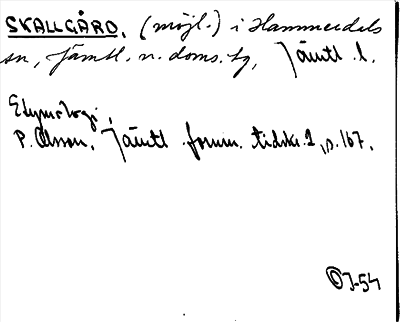 SKALLGÅRD, (möjl.) i Hammerdals
sn, Jämtl. n. doms. tg, Jämtl. l.
Etymologi,
P. Olsson, Jämtl. fornm. tidskr. 1, p. 167.
OJ-54